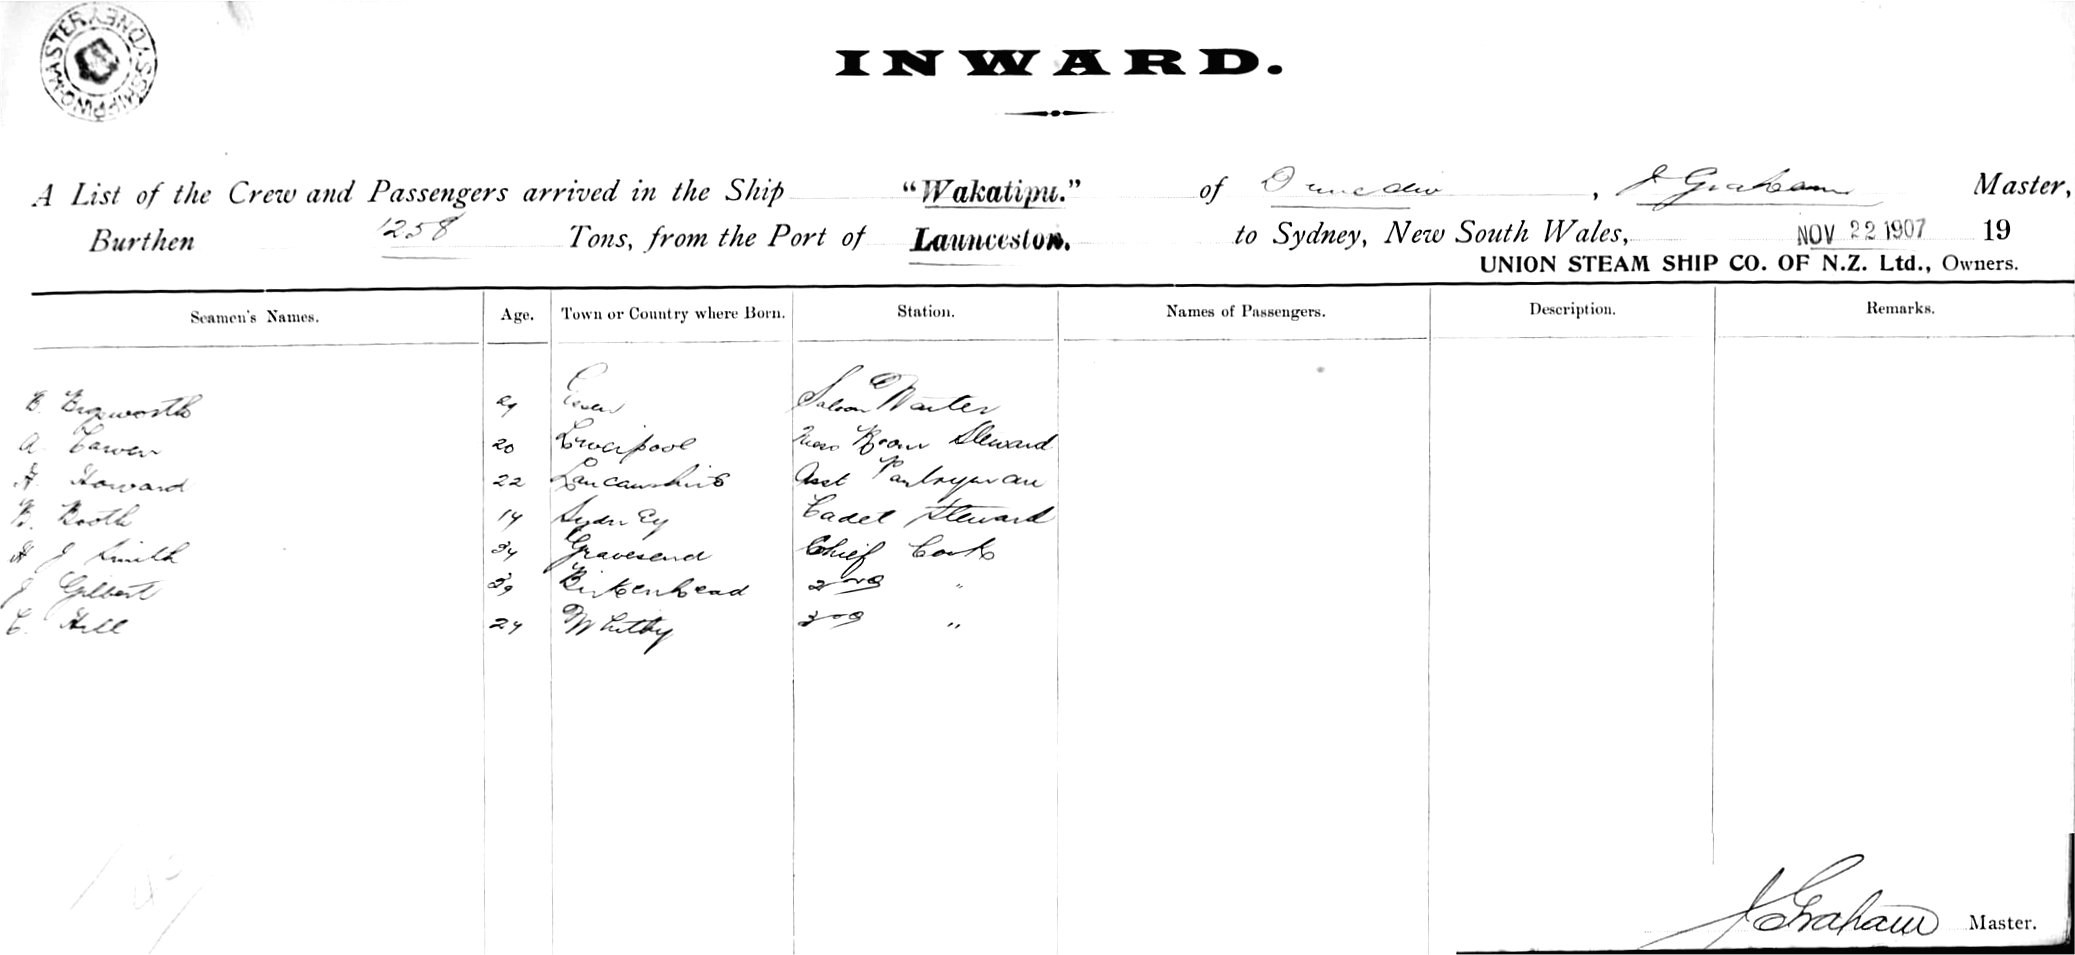 SHIPPING MASTER SYDNEY
INWARD.
A List of the Crew and Passengers arrived in the Ship "Wakatipu." of Dunedin, J Graham Master,
Burthen 1258 Tons, from the Port of Launceston. to Sydney, New South Wales, NOV 22 1907 19
UNION STEAM SHIP CO. OF N.Z. Ltd., Owners.
Seamen's Names. Age. Town or Country where Born. Station. Names of Passengers. Description. Remarks.
29 Essex Saloon Waiter
A. 20 Liverpool Mess Room Steward
H Howard 22 Lancashire Asst Pantryman
B. Booth Sydney Cadet Steward
H J Smith 34 Gravesend Chief Cook
J Gilbert 39 Birkenhead 2nd "
C. Hill 24 Whitby 3rd "
J Graham Master.